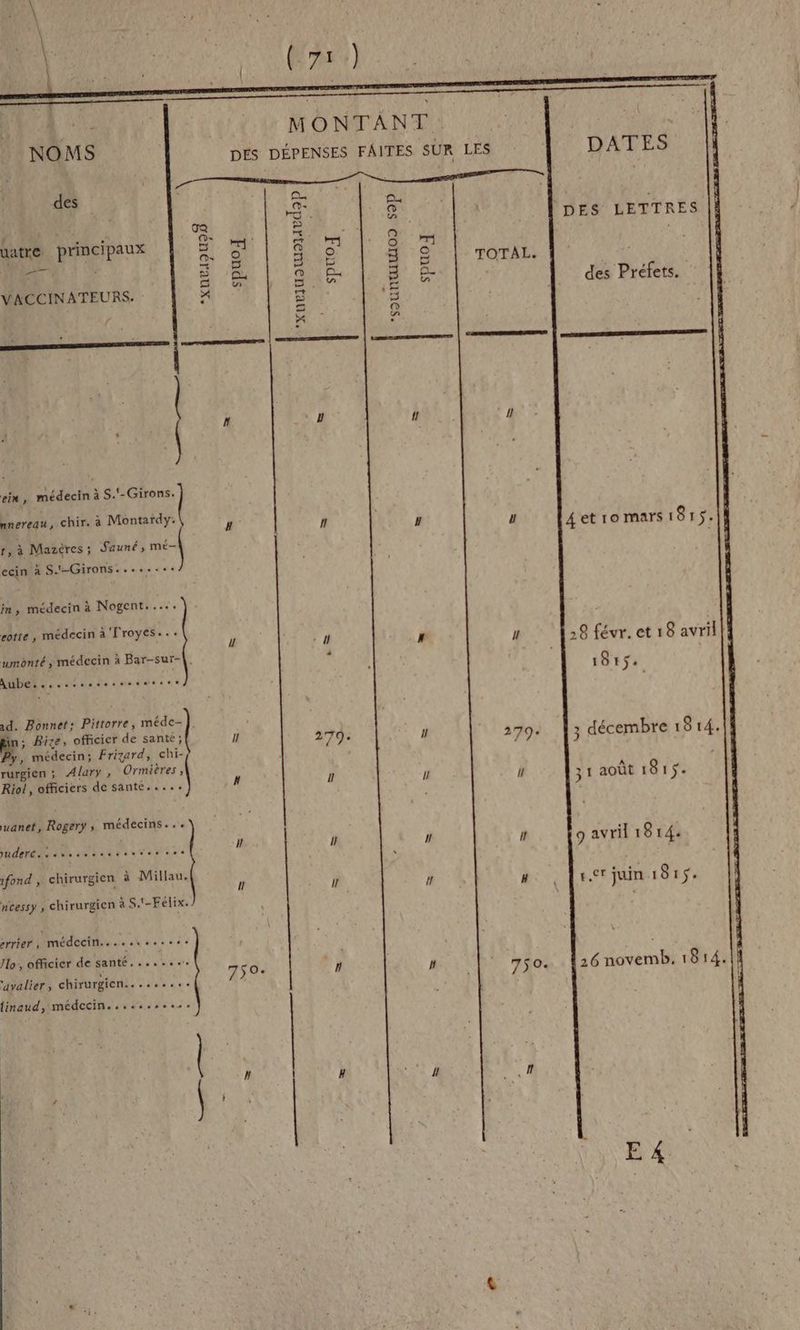 (71)
NOMS
des
uatre principaux
VACCINATEURS.
MONTANT
DES DÉPENSES FAITES SUR LES
Fonds généraux.
Fonds départementaux.
Fonds des communes.
TOTAL.
DATES
DES LETTRES
des Préfets.
" " " "
ein, médecin à S.t-Girons.
nnereau, chir. à Montardy. " " " " 4 et 10 mars 1815.
r, à Mazères; Sauné, mé-
ecin à S.t-Girons........
in, médecin à Nogent.....
eotte, médecin à Troyes... " " " " 28 févr. et 18 avril
umonté, médecin à Bar-sur- 1815.
Aube.................
ad. Bonnet; Pittorre, méde-
in; Bize, officier de santé; " 279. " 279. 3 décembre 1814.
Py, médecin; Frizard, chi-
rurgien; Alary, Ormières, " " " " 31 août 1815.
Riol, officiers de santé.....
uanet, Rogery, médecins...
uderc................. " " " " 9 avril 1814.
fond, chirurgien à Millau. " " " " 1.er juin 1815.
ncessy, chirurgien à S.t-Félix.
errier, médecin...........
llo, officier de santé........ 750. " " 750. 26 novemb. 1814.
avalier, chirurgien.........
linaud, médecin...........
" " " "
E 4